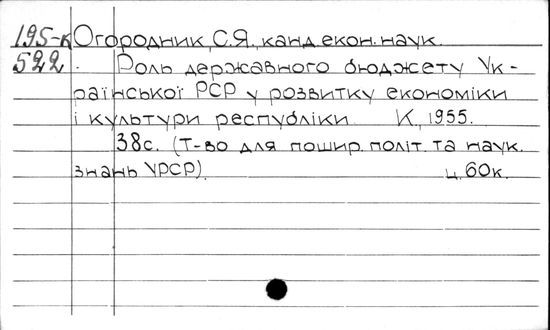 195-к Огородник, С.Я., канд. екон. наук.
522. Роль державного бюджету Ук-
раїнської РСР у розвитку економіки
і культури республіки К., 1955.
38с. (Т-во для пошир. політ. та наук.
знань УРСР). ц. 60к.